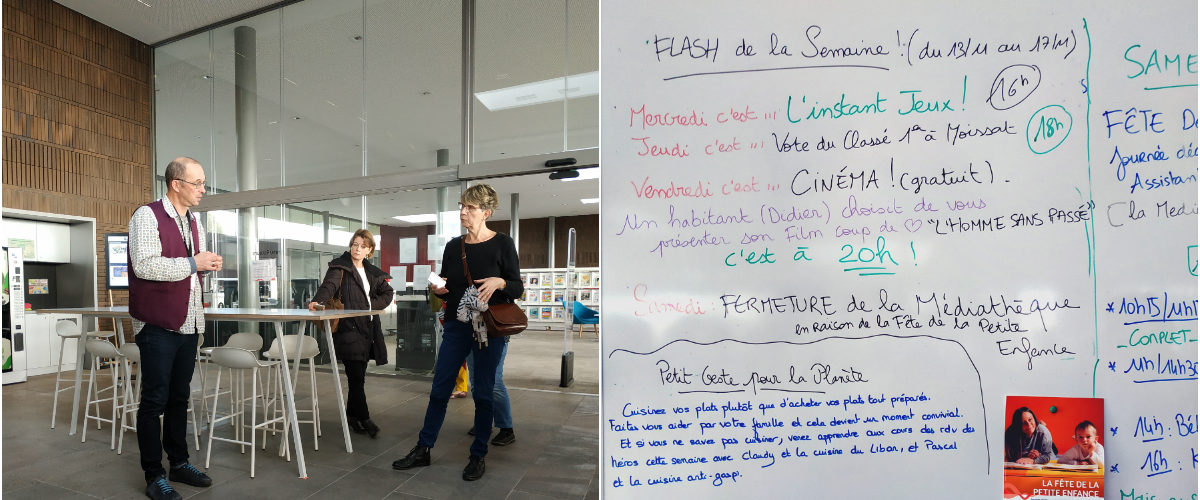 FLASH de la Semaine ! (du 13/11 au 17/11)
Mercredi c'est ... L'instant Jeux ! 16h
Jeudi c'est ... Vote du Classé 1er à Moissat 18h
Vendredi c'est ... CINÉMA ! (gratuit).
Un habitant (Didier) choisit de vous
présenter son Film coup de ♡ "L'HOMME SANS PASSÉ"
c'est à 20h !
Samedi : FERMETURE de la Médiathèque
en Raison de la Fête de la Petite
Enfance
Petit Geste pour la Planète
Cuisinez vos plats plutôt que d'acheter vos plats tout préparés.
Faites vous aider par votre famille et cela devient un moment convivial.
Et si vous ne savez pas cuisiner, venez apprendre aux cours des rdv des
héros cette semaine avec Claudy et la cuisine du Liban, et Pascal
et la cuisine anti-gaspi.
SAME
FÊTE De
Journée déc
Assistant
la Medi
* 10h15/11h
- COMPLET -
* 11h/11h30
* 14h : Bé
* 16h : K
Mais au
LA FÊTE DE LA
PETITE ENFANCE